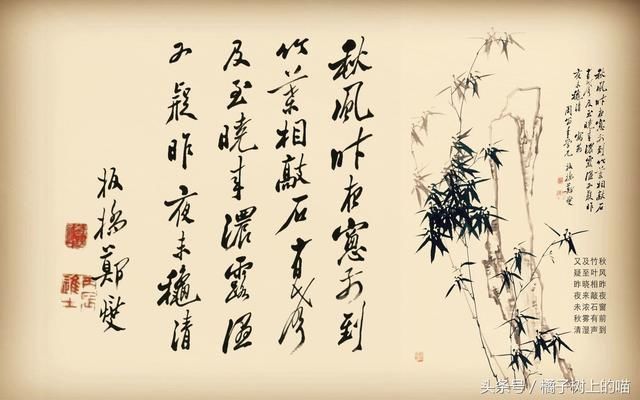 秋風昨夜窓前到
竹葉相敲石有聲
及至曉來濃露湿
又疑昨夜未穐清
板橋鄭燮
秋風昨夜窓前到竹葉相敲石
有聲及至曉來濃露湿又疑昨
夜未穐清
板橋鄭燮
秋风昨夜窗前到
竹叶相敲石有声
及至晓来浓雾湿
又疑昨夜未秋清
头条号 / 橘子树上的喵